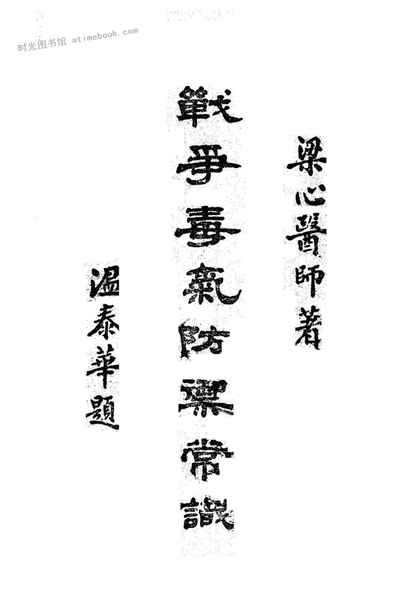 时光图书馆 atimebook.com
梁心醫師著
戰爭毒氣防禦常識
溫泰華題